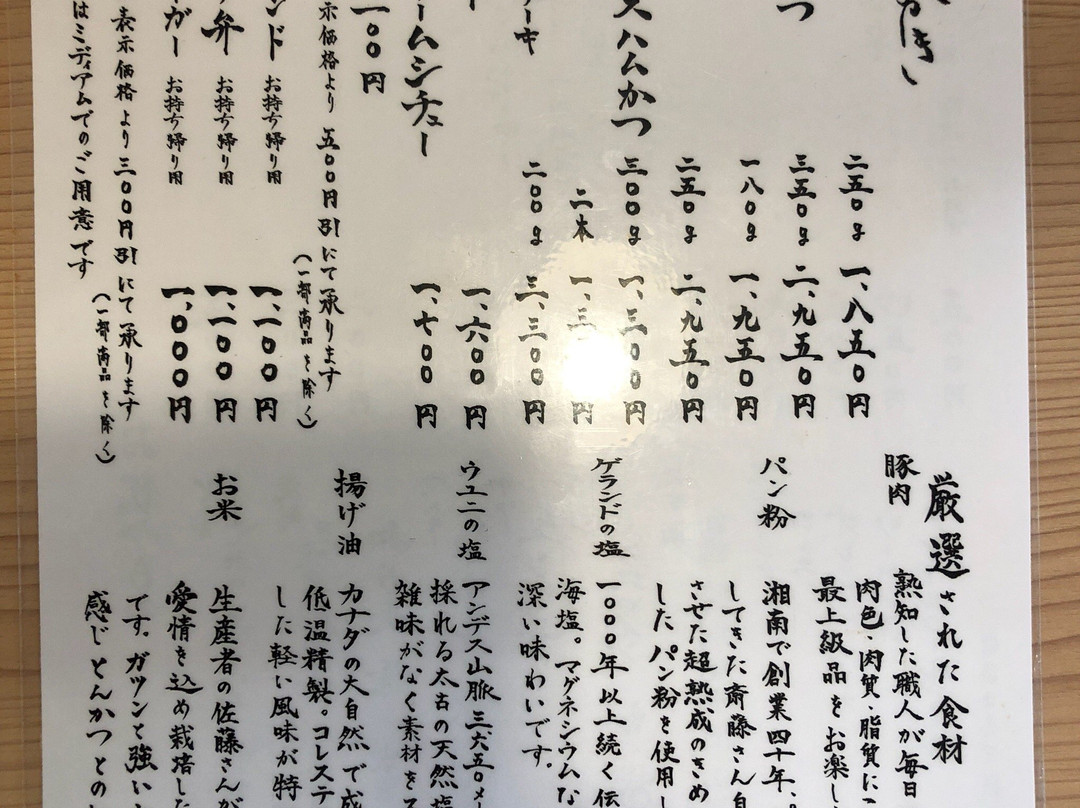 き
つ
スハムかつ
ーキ
ームシチュー
一〇〇円
示価格より五〇〇円引にて承ります
(一部商品を除く)
ンド お持ち帰り用
弁 お持ち帰り用
ガー お持ち帰り用
表示価格より三〇〇円引にて承ります
(一部商品を除く)
はミディアムでのご用意です
二五〇g 一、八五〇円
三五〇g 二、九五〇円
一八〇g 一、九五〇円
二五〇g 二、九五〇円
三〇〇g 一、三〇〇円
二本 一、三 円
二〇〇g 三、三〇〇円
一、六〇〇円
一、七〇〇円
一、一〇〇円
一、一〇〇円
一、〇〇〇円
厳選された食材
豚肉
熟知した職人が毎日
肉色・肉質・脂質に
最上級品をお楽し
パン粉
湘南で創業四十年、
してきた齋藤さん自
させた超熟成のきめ
したパン粉を使用し
ゲランドの塩
一〇〇〇年以上続く伝
海塩。マグネシウムな
深い味わいです。
ウユニの塩
アンデス山脈三、六五〇メー
採れる太古の天然塩
雑味がなく素材を
揚げ油
カナダの大自然で成
低温精製。コレステ
した軽い風味が特
お米
生産者の佐藤さんが
愛情を込め栽培した
です。ガツンと強い
感じとんかつとの